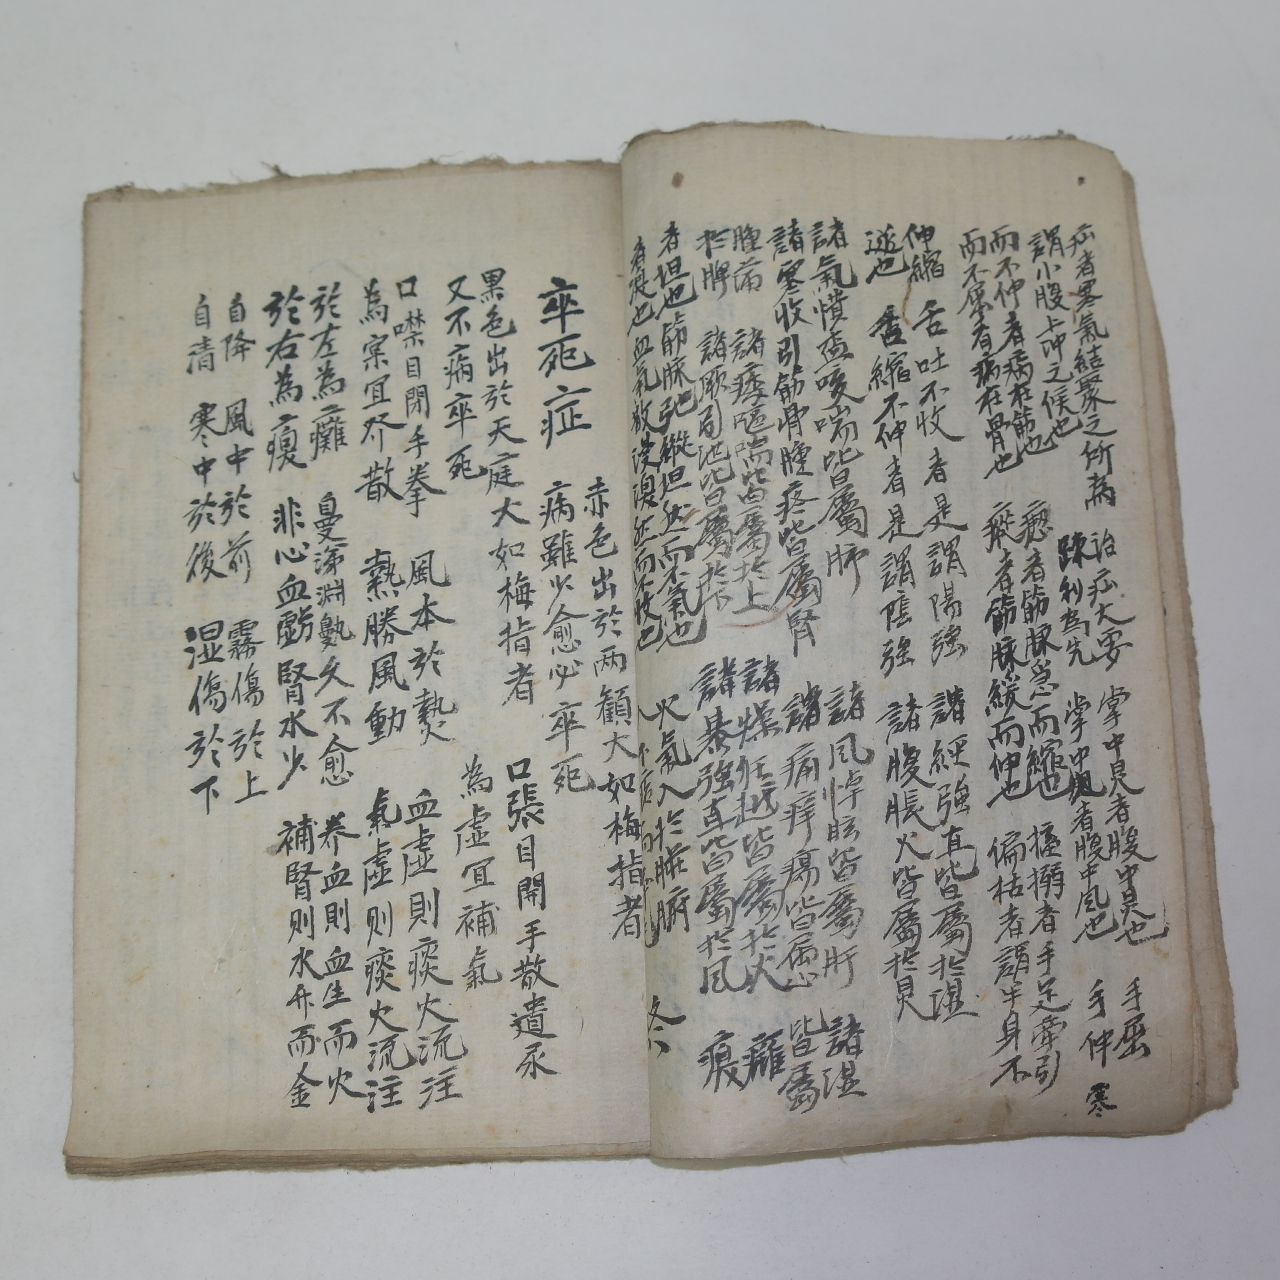 疝者寒氣結聚之所為 治疝大要 掌中炅者腹中炅也 手屈
謂小腹上冲之候也 疎利為先 掌中風者腹中風也 手伸 寒
而不伸者病在筋也 瘛者筋脉急而縮也 搐搦者手足牽引
而不屈者病在骨也 瘲者筋脉緩而伸也 偏枯者謂半身不
伸縮 舌吐不收者是謂陽強 諸經強直皆屬於湿
遂也 舌縮不伸者是謂陰強 諸腹脹火皆屬於炅
諸氣憤盈咳喘皆屬肺 諸風悼眩皆屬肝 諸湿
諸寒收引筋骨腫疼皆屬腎 諸痛痒瘍皆屬心 皆屬
腫満 諸痿嘔喘皆屬於上 諸燥狂越皆屬於火 癰
於脾 諸厥固泄皆屬於下 諸暴強直皆屬於風 痪
者坦也筋脉弛縱坦然而不氣也 火氣入於臓腑
者渙也血氣散渙渙然而不收也
赤色出於両顴大如梅指者
卒死症 病雖少愈必卒死
黒色出於天庭大如梅指者 口張目開手散遺尿
又不病卒死 為虚宜補氣
口噤目閉手拳 風本於𤍠 血虚則痰火流注
為宲宜介散 𤍠勝風動 氣虚則痰火流注
於左為癱 鼻涕淵𤍠久不愈 养血則血生而火
於右為瘓 非心血虧腎水少 補腎則水升而金
自降 風中於前 霧傷於上
自清 寒中於後 湿傷於下